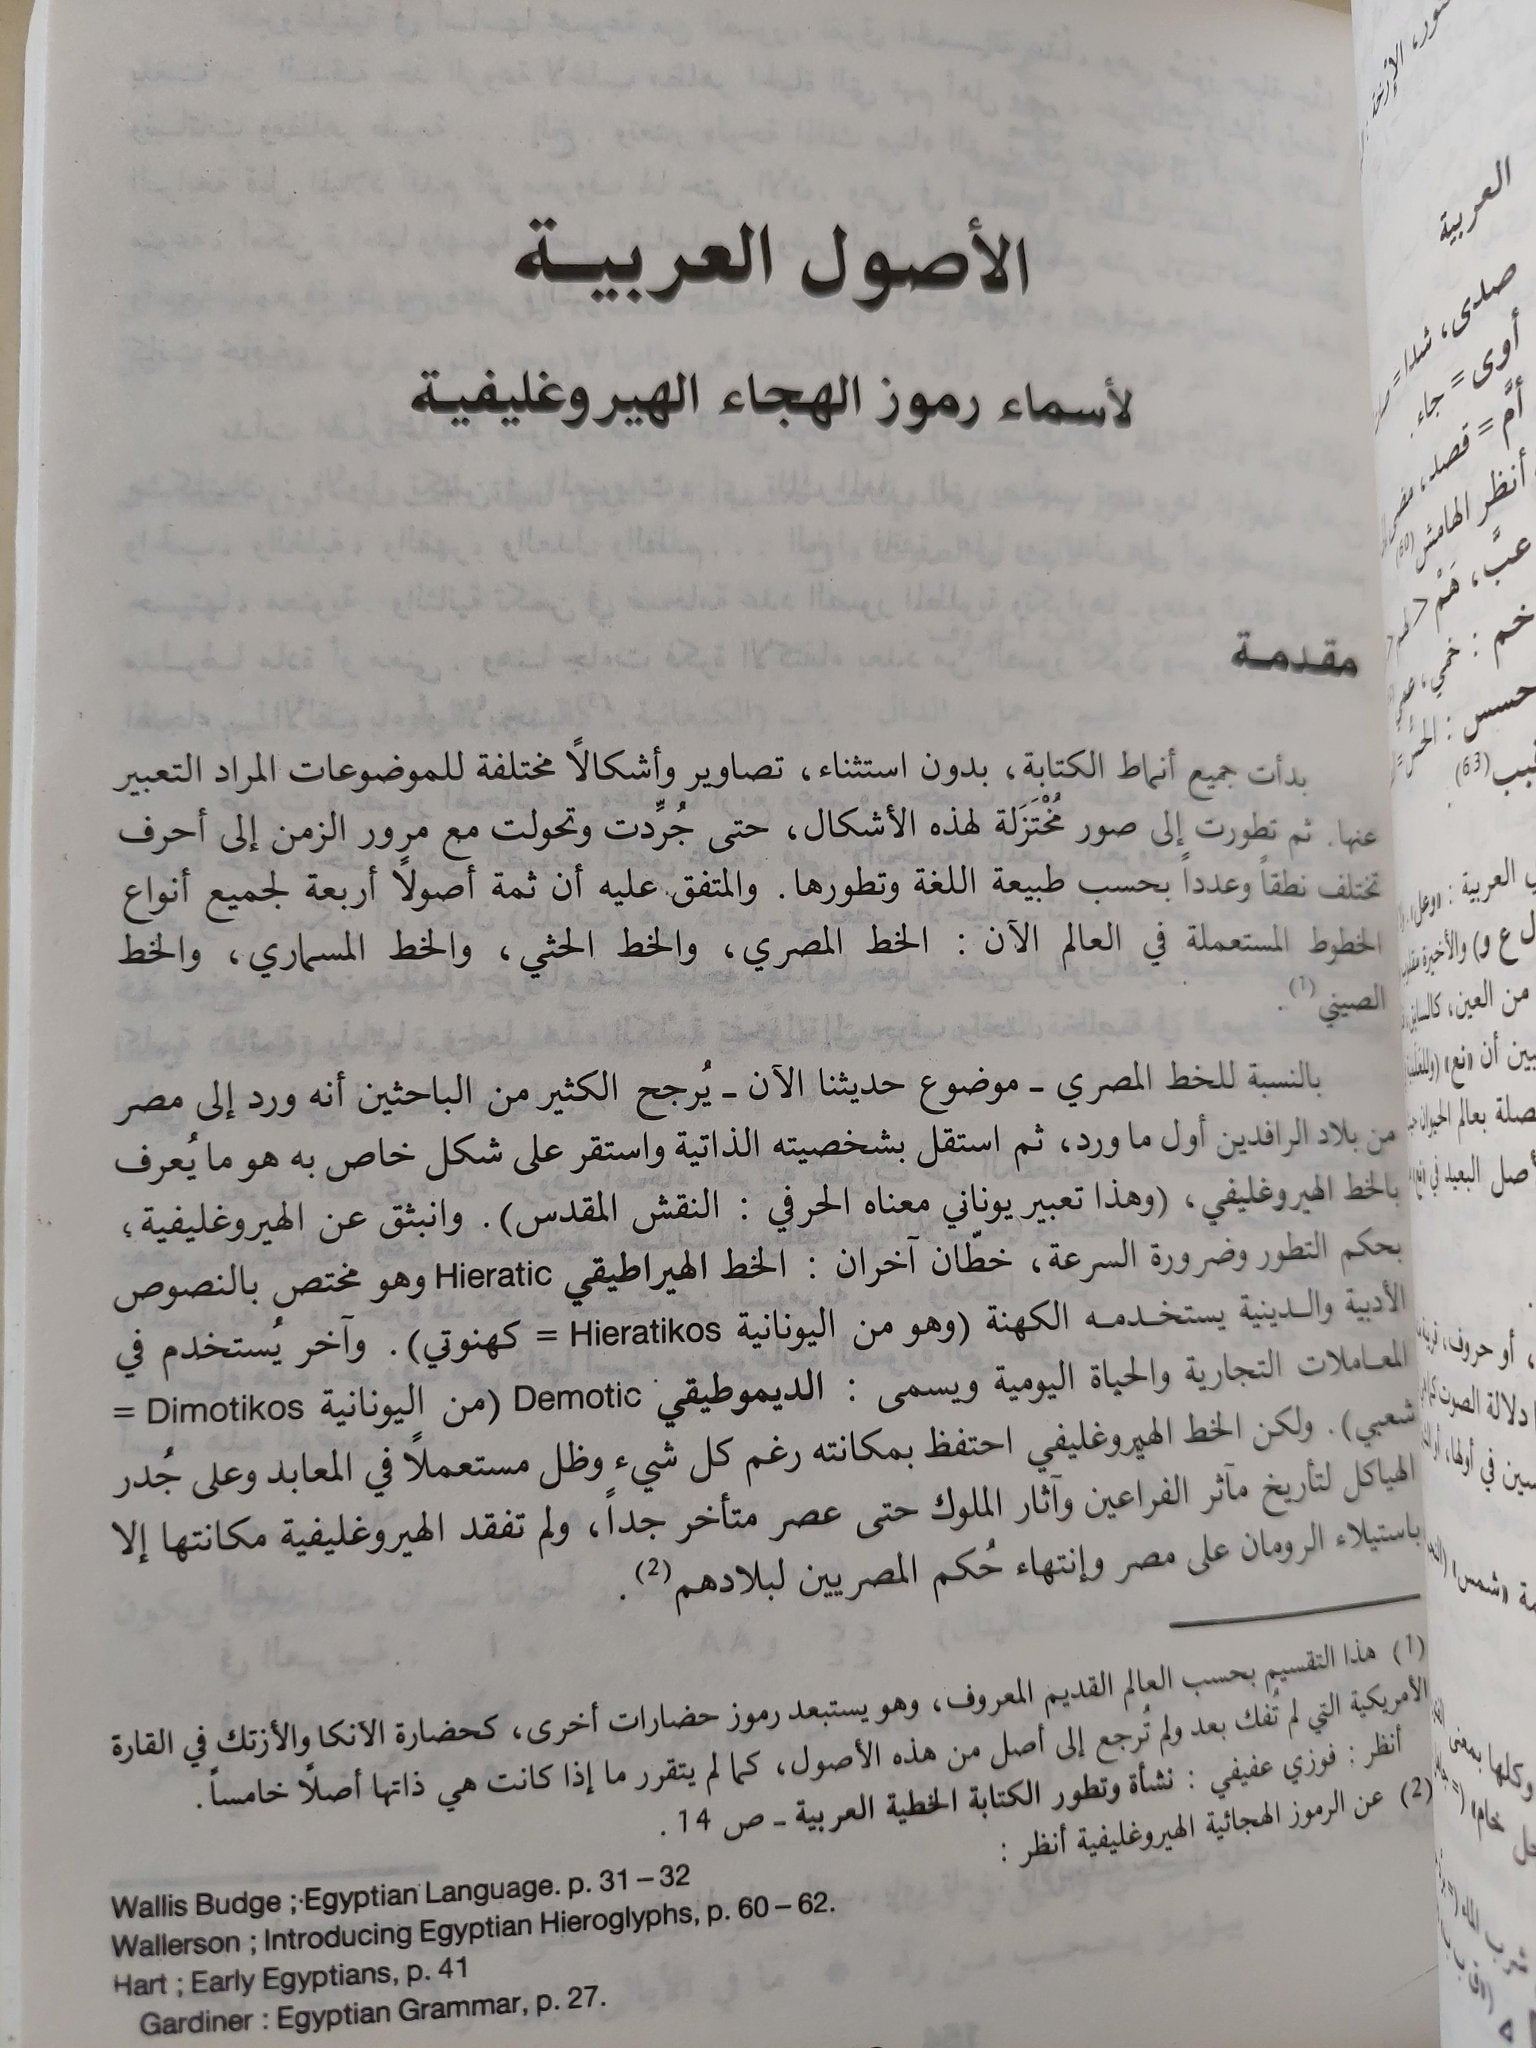 الأصول العربية
لأسماء رموز الهجاء الهيروغليفية
مقدمة
بدأت جميع أنماط الكتابة، بدون استثناء، تصاوير وأشكالًا مختلفة للموضوعات المراد التعبير
عنها. ثم تطورت إلى صور مُخْتَزَلة لهذه الأشكال، حتى جُرِّدت وتحولت مع مرور الزمن إلى أحرف
تختلف نطقاً وعدداً بحسب طبيعة اللغة وتطورها. والمتفق عليه أن ثمة أصولاً أربعة لجميع أنواع
الخطوط المستعملة في العالم الآن : الخط المصري، والخط الحثي، والخط المسماري، والخط
الصيني(1).
بالنسبة للخط المصري ـ موضوع حديثنا الآن ـ يُرجح الكثير من الباحثين أنه ورد إلى مصر
من بلاد الرافدين أول ما ورد، ثم استقل بشخصيته الذاتية واستقر على شكل خاص به هو ما يُعرف
بالخط الهيروغليفي، (وهذا تعبير يوناني معناه الحرفي : النقش المقدس). وانبثق عن الهيروغليفية،
بحكم التطور وضرورة السرعة، خطّان آخران : الخط الهيراطيقي Hieratic وهو مختص بالنصوص
الأدبية والدينية يستخدمه الكهنة (وهو من اليونانية Hieratikos = كهنوتي). وآخر يُستخدم في
المعاملات التجارية والحياة اليومية ويسمى : الديموطيقي Demotic (من اليونانية Dimotikos =
شعبي). ولكن الخط الهيروغليفي احتفظ بمكانته رغم كل شيء وظل مستعملاً في المعابد وعلى جُدر
الهياكل لتأريخ مآثر الفراعين وآثار الملوك حتى عصر متأخر جداً، ولم تفقد الهيروغليفية مكانتها إلا
باستيلاء الرومان على مصر وإنتهاء حُكم المصريين لبلادهم(2).
(1) هذا التقسيم بحسب العالم القديم المعروف، وهو يستبعد رموز حضارات أخرى، كحضارة الآنكا والأزتك في القارة
الأمريكية التي لم تُفك بعد ولم تُرجع إلى أصل من هذه الأصول، كما لم يتقرر ما إذا كانت هي ذاتها أصلًا خامساً.
أنظر : فوزي عفيفي : نشأة وتطور الكتابة الخطية العربية ـ ص 14.
(2) عن الرموز الهجائية الهيروغليفية أنظر :
Wallis Budge ; Egyptian Language. p. 31 – 32
Wallerson ; Introducing Egyptian Hieroglyphs, p. 60 – 62.
Hart ; Early Egyptians, p. 41
Gardiner : Egyptian Grammar, p. 27.
العربية
صدى، شدا =
أوى = جاء.
أمَّ = قصد،
أنظر الهامش (60)
عبَّ، هَمْ >
خم : خمي،
(63)
ي العربية : «وعل»
ل ع و) والأخيرة
من العين،
بين أن «نع»
صلة بعالم الحيوان
أصل البعيد في
، أو حروف،
دلالة الصوت
سين في أولها،
مة «شمس»
وكلها بمعنى